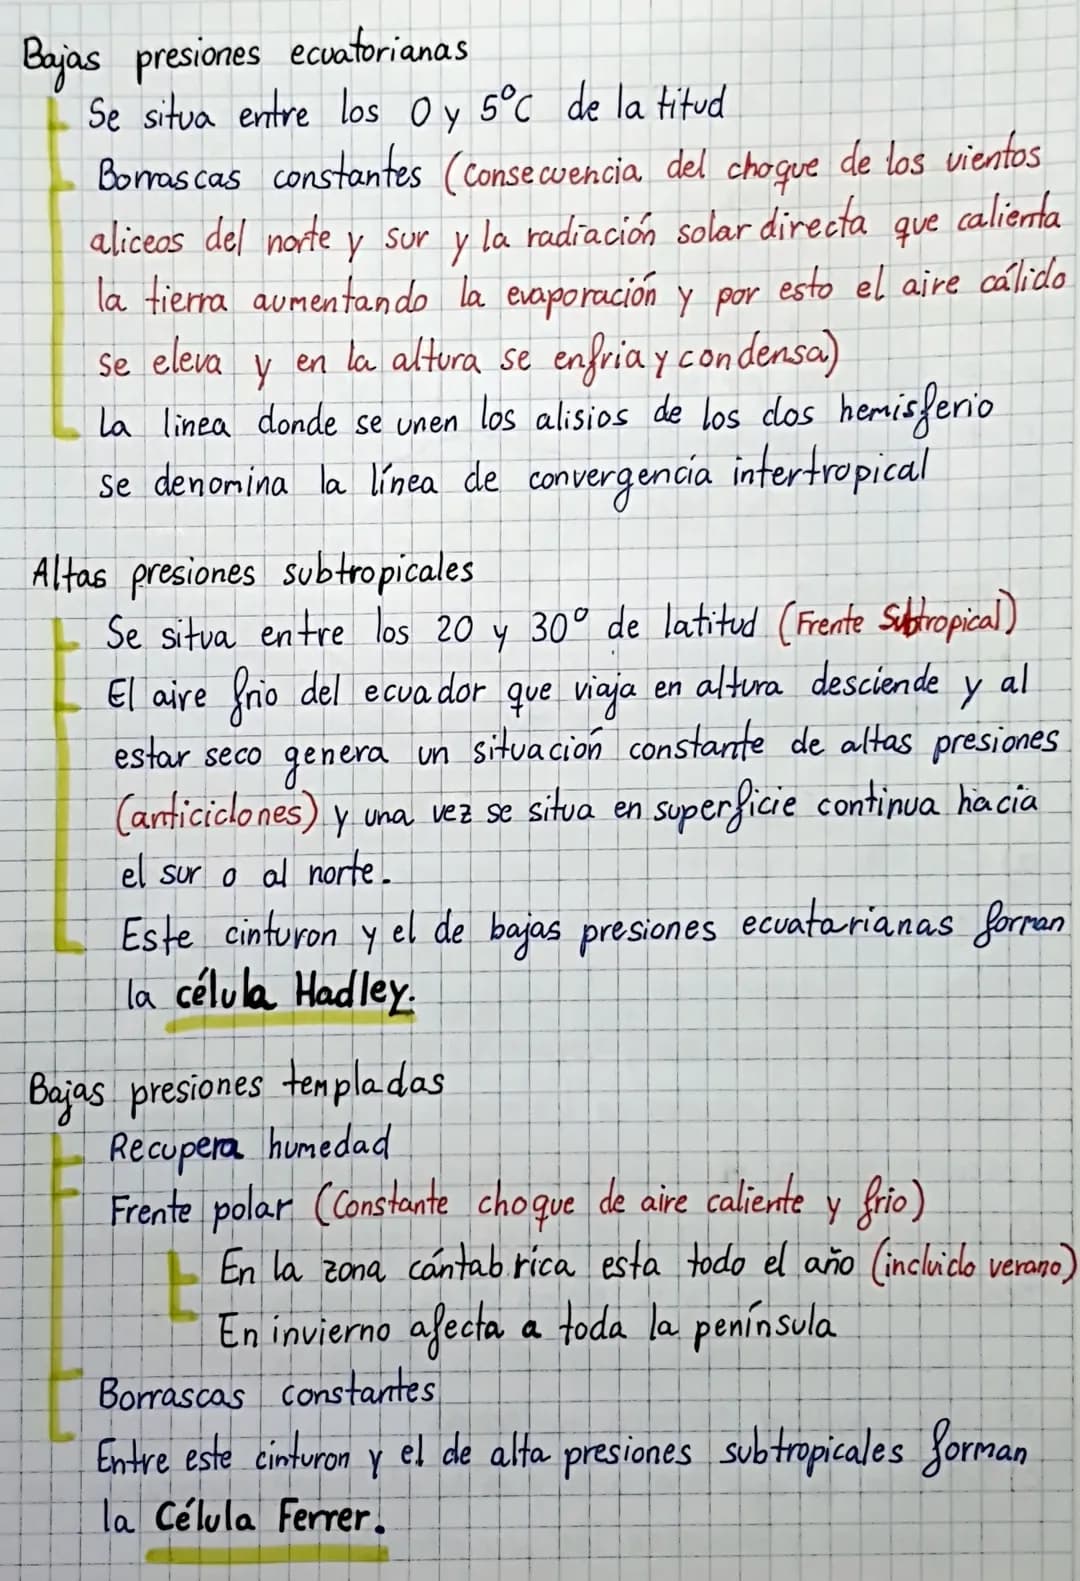 Bajas presiones ecuatorianas
Se situa entre los 0 y 5°C de la titud
Borrascas constantes (Consecuencia del choque de los vientos
aliceos del norte y sur y la radiación solar directa que calienta
la tierra aumentando la evaporación y por esto el aire cálido
se eleva y en la altura se enfria y condensa)
La linea donde se unen los alisios de los dos hemisferio
se denomina la línea de convergencia intertropical
Altas presiones subtropicales
Se situa entre los 20 y 30° de latitud (Frente Subtropical)
El aire frio del ecuador que viaja en altura desciende y al
estar seco genera un situación constante de altas presiones
(anticiclones) y una vez se situa en superficie continua hacia
el sur o al norte.
Este cinturon y el de bajas presiones ecuatarianas forman
la célula Hadley.
Bajas presiones templadas
Recupera humedad
Frente polar (Constante choque de aire caliente y frio)
En la zona cántabrica esta todo el año (incluido verano)
En invierno afecta a toda la península
Borrascas constantes
Entre este cinturon y el de alta presiones subtropicales forman
la Célula Ferrer.